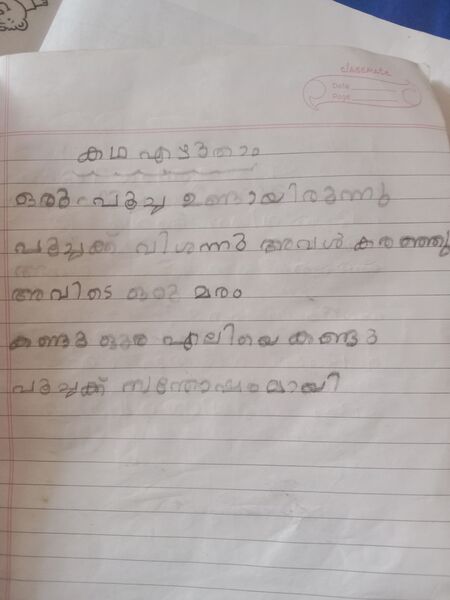 classmate
Date
Page
കഥ എഴുതാം
ഒരു പൂച്ച ഉണ്ടായിരുന്നു
പൂച്ചക്ക് വിശന്നു അവൾ കരഞ്ഞു
അവിടെ ഒരു മരം
കണ്ടു ഒരു എലിയെ കണ്ടു
പൂച്ചക്ക് സന്തോഷമായി